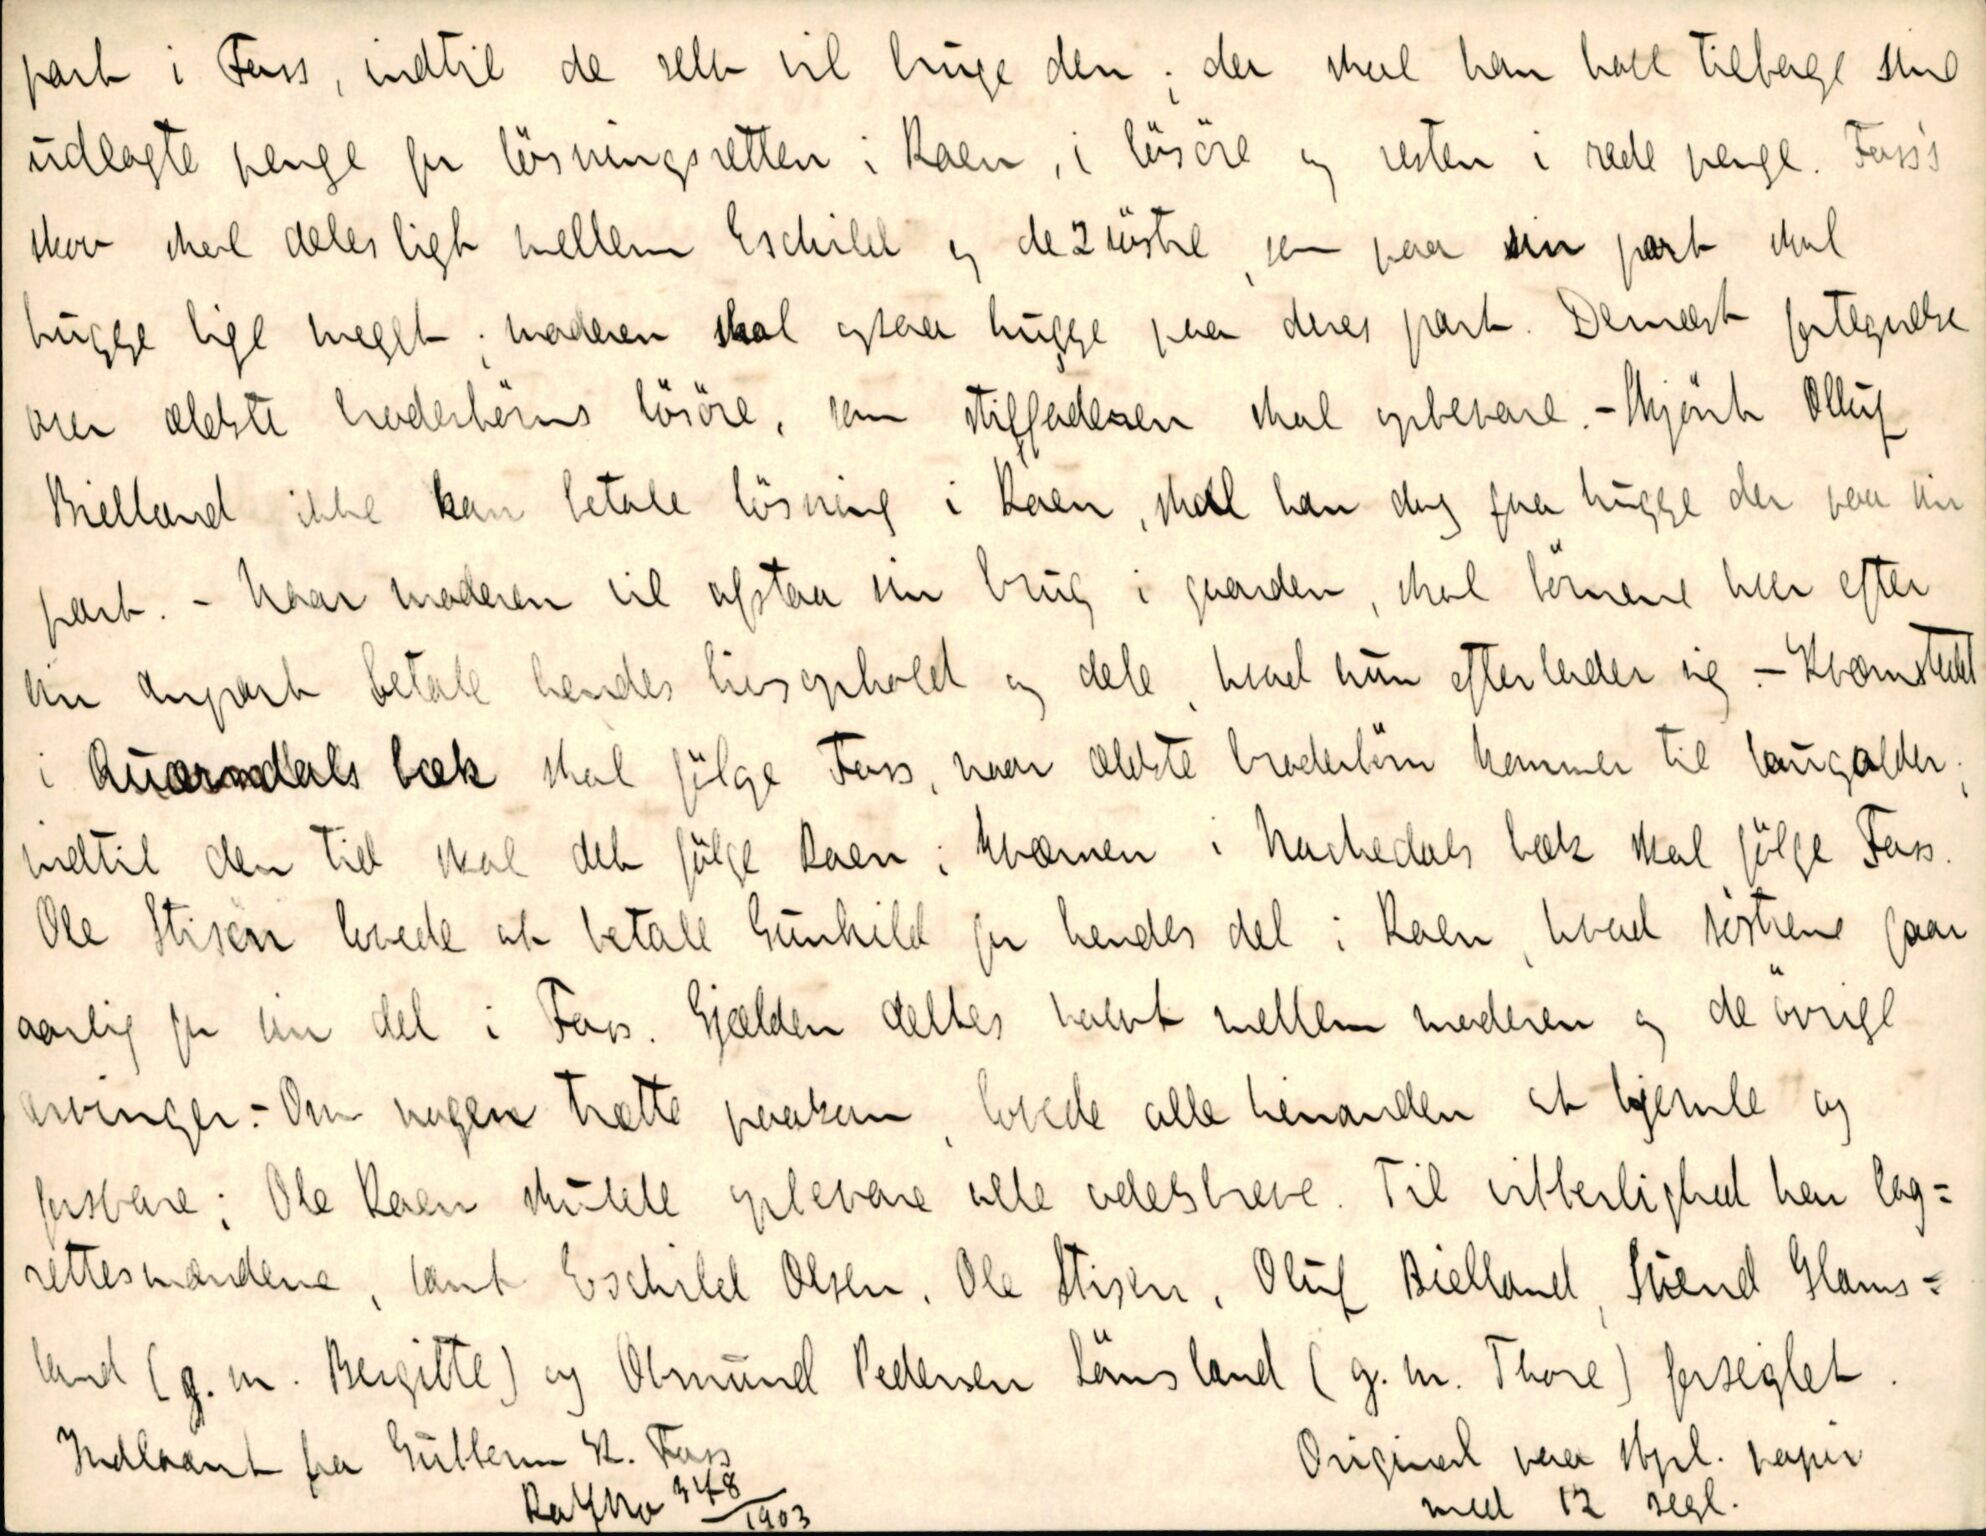 part i Foss, indtil de selv vil bruge den; der skal han have tilbage sine
udlagte penge for løsningsretten i Roen, i løsöre og resten i rede penge. Foss's
skov skal deles ligt mellem Eschild og de 2 söstre, som paa sin part skal
hugge lige meget; moderen skal ogsaa hugge paa deres part. Dernæst fortegnelse
over ældste broderbörns lösöre, som stiffaderen skal opbevare. - Skjönt Olluf
Bielland ikke kan betale lösning i Roen, skal han dog faa hugge der paa sin
part. - Naar moderen vil afstaa sin brug i gaarden, skal börnene hver efter
sin anpart betale hendes livsophold og dele, hvad hun efterlader sig. - Kværnstedet
i Quærndals bæk skal fölge Foss, naar ældste broderbörn kommer til laugalder;
indtil den tid skal det fölge Roen; kværnen i bæk skal fölge Foss.
Ole Stisen lovede at betale Gunhild for hendes del i Roen, hvad söstrene faar
aarlig for sin del i Foss. Gjælden deltes halvt mellem moderen og de övrige
arvinger. - Om nogen trætte paakom, lovede alle hinanden at hjemle og
forsvare; Ole Roen skulde opbevare alle odelsbreve. Til vitterlighed har lag=
rettesmændene, samt Eschild Olsen, Ole Stisen, Oluf Bielland, Svend Glams=
land (g. m. Bergitte) og Osmund Pedersen Lönsland (g. m. Thore) forseglet.
Indlaant fra Guttorm K. Foss
348/1903
Original paa stpl. papir
med 12 segl.